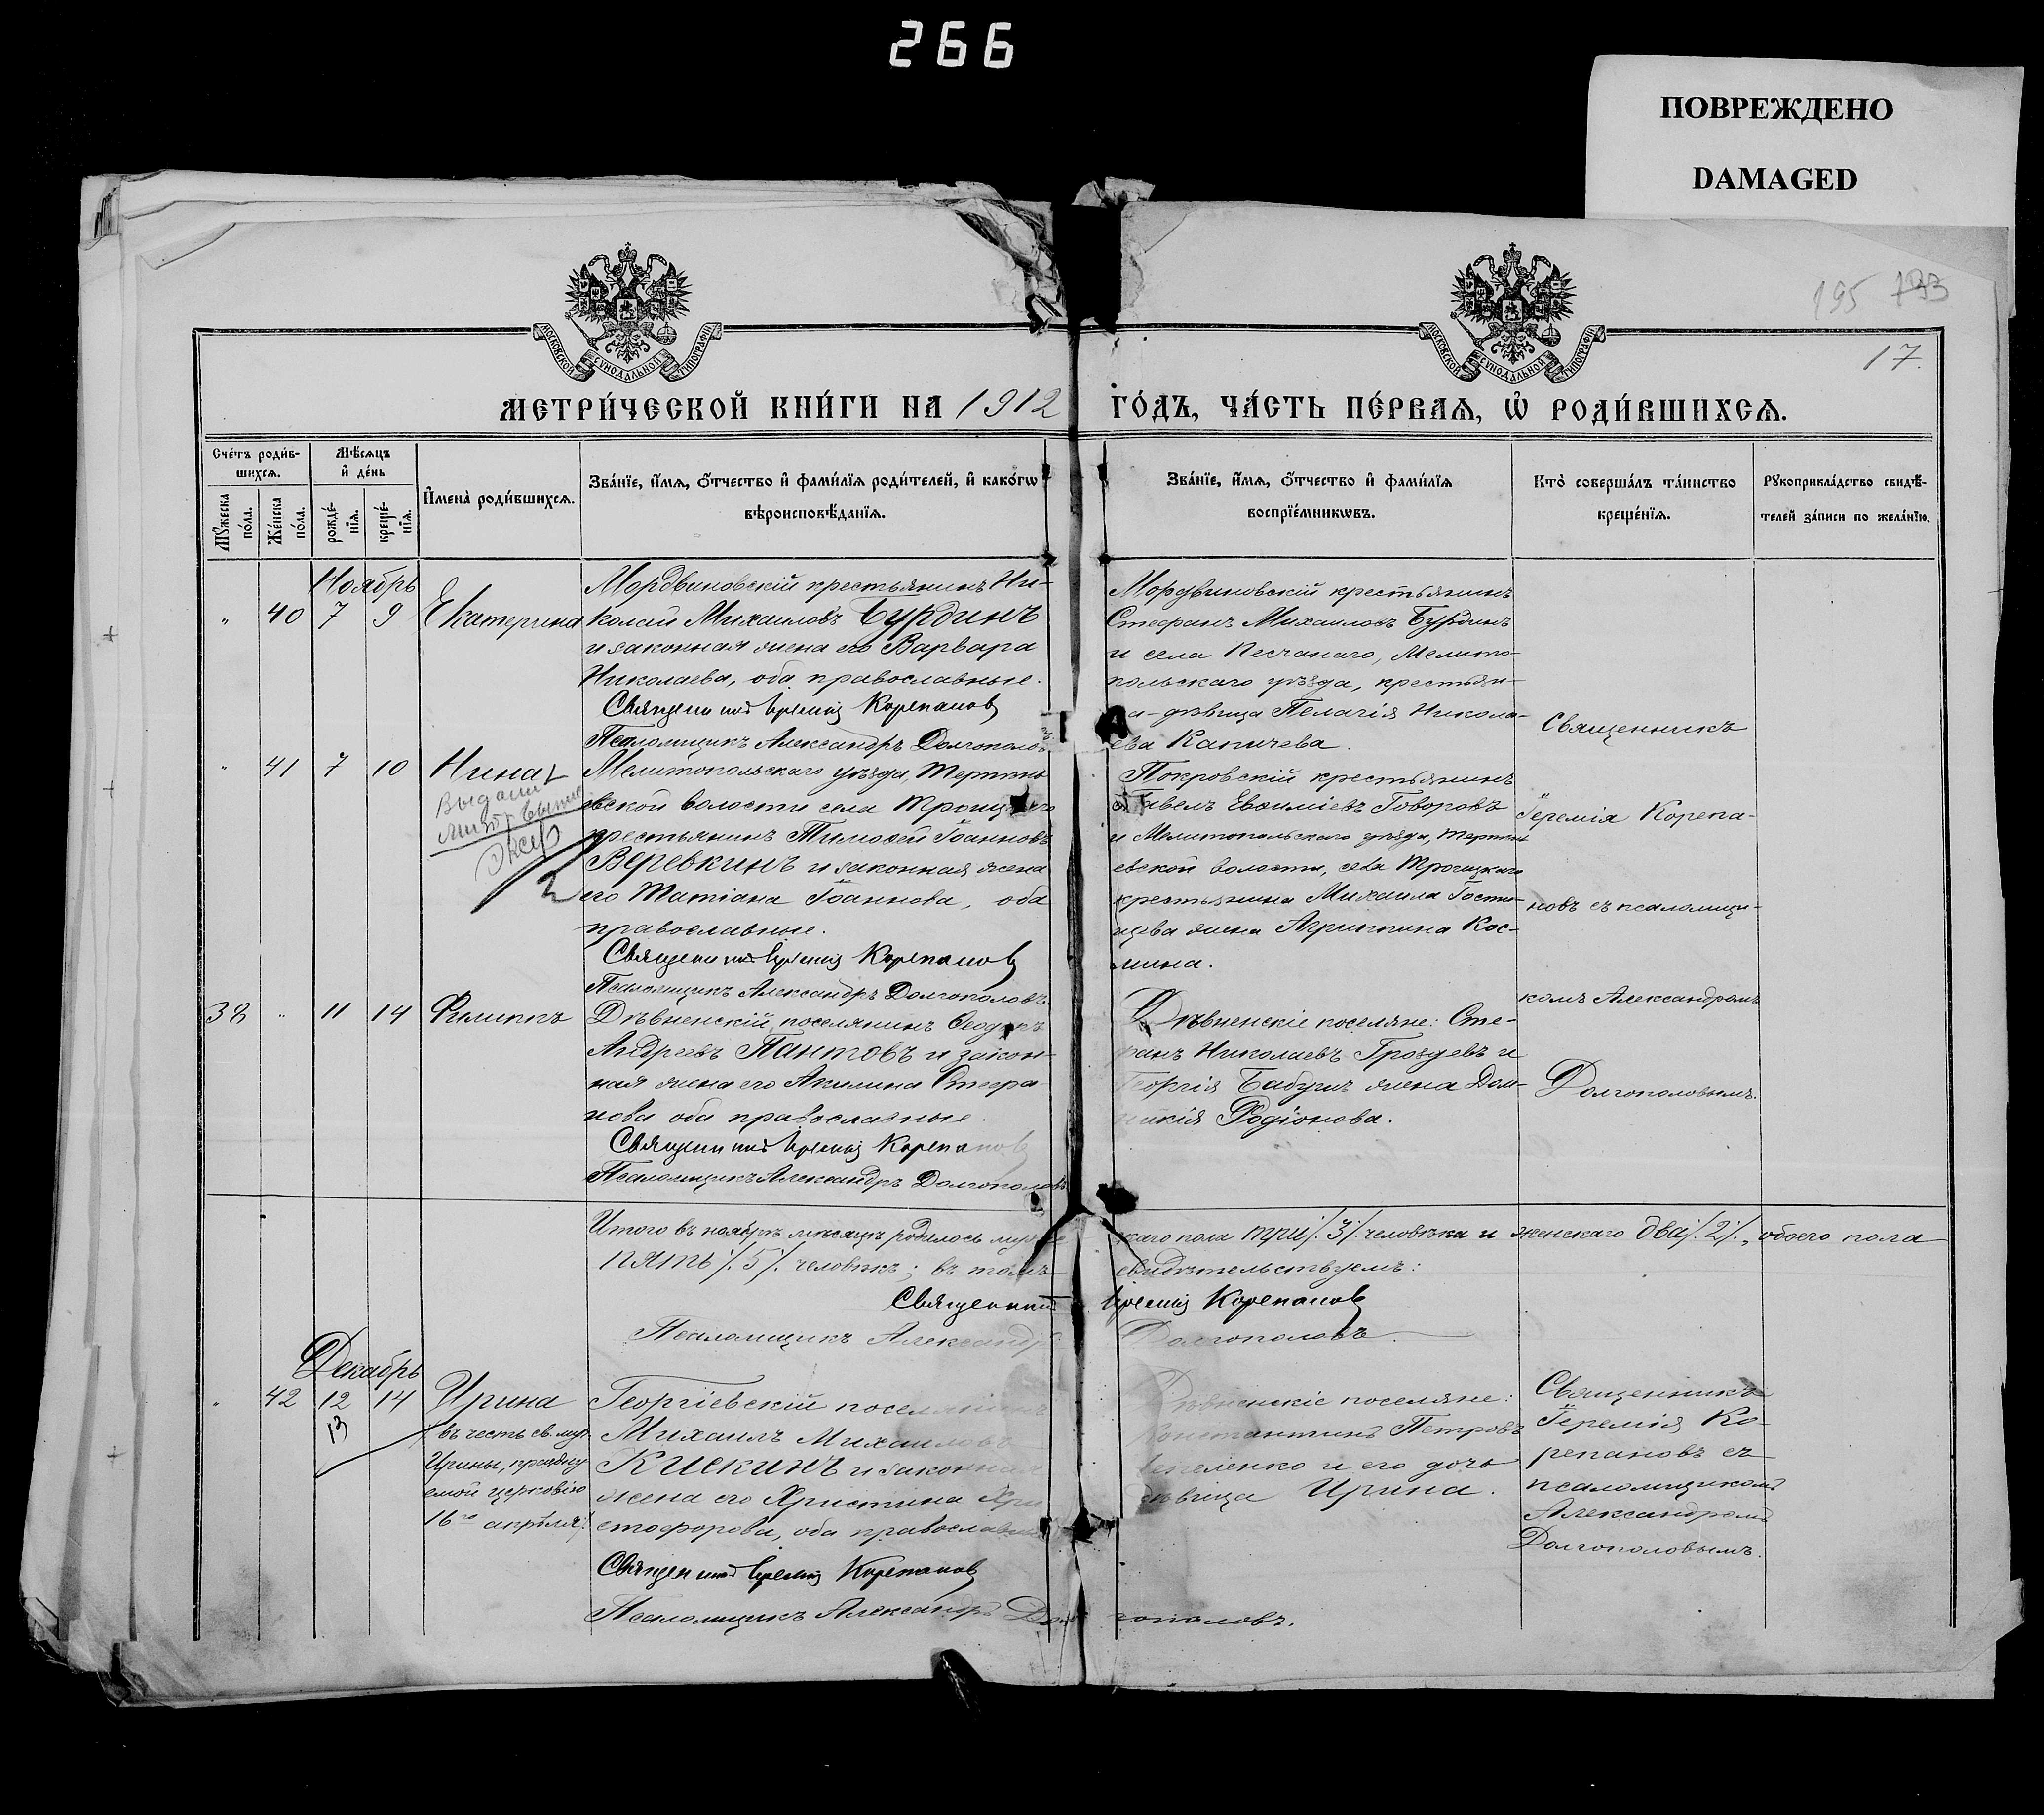 266
ПОВРЕЖДЕНО
DAMAGED
195 193
17.
МОСКОВСКОЙ СѴНОДАЛЬНОЙ ТИПОГРАФІИ
МОСКОВСКОЙ СѴНОДАЛЬНОЙ ТИПОГРАФІИ
МЕТРИ́ЧЕСКОЙ КНИ́ГИ НА 1912 ГО́ДЪ, ЧА́СТЬ ПЕ́РВАЯ, Ѡ҆ РОДИ́ВШИХСЯ.
Сче́тъ роди́в-
шихся.
Мѣ́сяцъ
и҆ де́нь
Мꙋ́жеска
по́ла.
Же́нска
по́ла.
рожде́-
нїя.
креще́-
нїя.
И҆мена̀ роди́вшихся.
Зва́нїе, и҆́мя, ѻ҆́тчество и҆ фами́лїя роди́телей, и҆ како́гѡ
вѣроисповѣ́данїя.
Зва́нїе, и҆́мя, ѻ҆́тчество и҆ фами́лїя
воспрїе́мникѡвъ.
Кто̀ соверша́лъ та́инство
креще́нїя.
Рꙋкоприкла́дство свидѣ́-
телей за́писи по жела́нїю.
Ноябрь
" 40 7 9 Екатерина
Мордвиновскій крестьянинъ Ни-
колай Михаиловъ Бурдинъ
и законная жена его Варвара
Николаева, оба православные.
Священникъ Іеремія Корепановъ
Псаломщикъ Александръ Долгополовъ
Мордвиновскій крестьянинъ
Стефанъ Михаиловъ Бурдинъ
и села Песчанаго, Мелито-
польскаго уѣзда, крестьян-
ка-дѣвица Пелагія Никола-
ева Капичева.
" 41 7 10 Нина
Выдана
Мелитопольскаго уѣзда, Терпѣнь
евской волости села Троицкаго
крестьянинъ Тимоѳей Іоанновъ
Веревкинъ и законная жена
его Татіана Іоаннова, оба
православные.
Священникъ Іеремія Корепановъ
Псаломщикъ Александръ Долгополовъ
2
Покровскій крестьянинъ
Павелъ Евѳиміевъ Говоровъ
и Мелитопольскаго уѣзда, Терпѣнь
евской волости, села Троицкаго
крестьянина Михаила Гости-
щева жена Агриппина Кос-
мина.
38 " 11 14 Филиппъ
Дѣвненскій поселянинъ Ѳеодоръ
Андреевъ Пантовъ и закон-
ная жена его Акилина Стефа-
нова оба православные.
Священникъ Іеремія Корепановъ
Псаломщикъ Александръ Долгополовъ
Дѣвненскіе поселяне: Сте-
фанъ Николаевъ Гроздевъ и
Георгія Бабуги жена Дом-
никія Родіонова.
Священникъ
Іеремія Корепа-
новъ съ псаломщи-
комъ Александромъ
Долгополовымъ.
Итого въ ноябрѣ мѣсяцѣ родилось мужескаго пола три /.3/. человѣка и женскаго два /.2/., обоего пола
пять /.5/. человѣкъ; въ томъ свидѣтельствуемъ:
Священникъ Іеремія Корепановъ
Псаломщикъ Александръ Долгополовъ.
Декабрь
" 42 12 14 Ирина
13
въ честь св. муч.
Ирины, праздну
емой церковію
16го апрѣля
Георгіевскій поселянинъ
Михаилъ Михаиловъ
Кискинъ и законная
жена его Христина Хри
стофорова, оба православные
Священникъ Іеремія Корепановъ
Псаломщикъ Александръ Долгополовъ.
Дѣвненскіе поселяне:
Константинъ Петровъ
и его дочь
дѣвица Ирина.
Священникъ
Іеремія Ко-
репановъ съ
псаломщикомъ
Александромъ
Долгополовымъ.